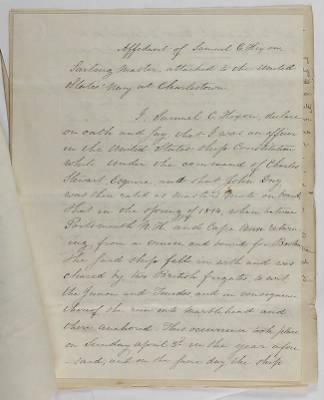 Affidavit of Samuel C. Hixon
Sailing Master, attached to the United
States Navy at Charlestown
I, Samuel C. Hixon, declare
on oath and say that I was an officer
in the United States ship Constitution
while under the command of Charles
Stewart Esquire, and that John
was then rated as masters mate on board,
that in the spring of 1814, when between
Portsmouth N.H. and Cape Ann return-
ing, from a cruise and bound for Boston
the said ship fell in with and was
chased by two British frigates, to wit
the Junon and Tenedos, and in consequence
thereof she ran into Marblehead and
there anchored. This occurrence took place
on Sunday April 3d in the year afore
-said, and on the same day the ship